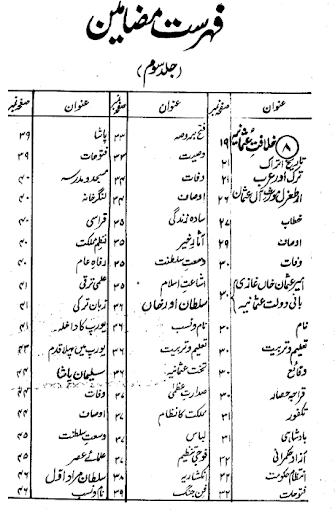 فہرست مضامین
(جلد سوم)
عنوان صفحہ نمبر
۸ خلافت عثمانیہ ۱۹
تاریخ اتراک ۲۱
ترک اور عرب ۲۱
خطاب ۲۷
اوصاف ۲۹
وفات ۳۰
امیر عثمان خاں غازی
بانی دولت عثمانیہ ۳۰
نام ۳۰
تعلیم و تربیت ۳۰
وقائع ۳۰
قراجہ حصار ۳۰
تکفور ۳۱
بادشاہی ۳۱
آزاد حکمرانی ۳۲
انتظام حکومت ۳۲
فتوحات ۳۲
عنوان صفحہ نمبر
فتح بروصہ ۳۳
وصیت ۳۳
وفات ۳۴
اوصاف ۳۴
سادہ زندگی ۳۵
آثار خیر ۳۵
وسعت سلطنت ۳۵
اشاعت اسلام ۳۵
سلطان اور خاں ۳۶
نام و نسب ۳۶
تعلیم و تربیت ۳۶
تخت عثمانیہ ۳۶
صدارت عظمیٰ ۳۷
مملکت کا نظام ۳۷
لباس ۳۷
فوجی تنظیم ۳۷
انکشاریہ ۳۸
فن جنگ ۳۹
عنوان صفحہ نمبر
پاشا ۳۹
فتوحات ۳۹
مسجد و مدرسہ ۴۰
لنگر خانہ ۴۰
قراسی ۴۰
نظم مملکت ۴۰
رفاہ عام ۴۰
علمی ترقی ۴۱
زبان ترکی ۴۱
یورپ کا داخلہ ۴۱
یورپ میں پہلا قدم ۴۳
سلیمان پاشا ۴۴
وفات ۴۴
اوصاف ۴۴
وسعت سلطنت ۴۵
علمائے عصر ۴۵
سلطان مراد اول ۴۶
نام و نسب ۴۶